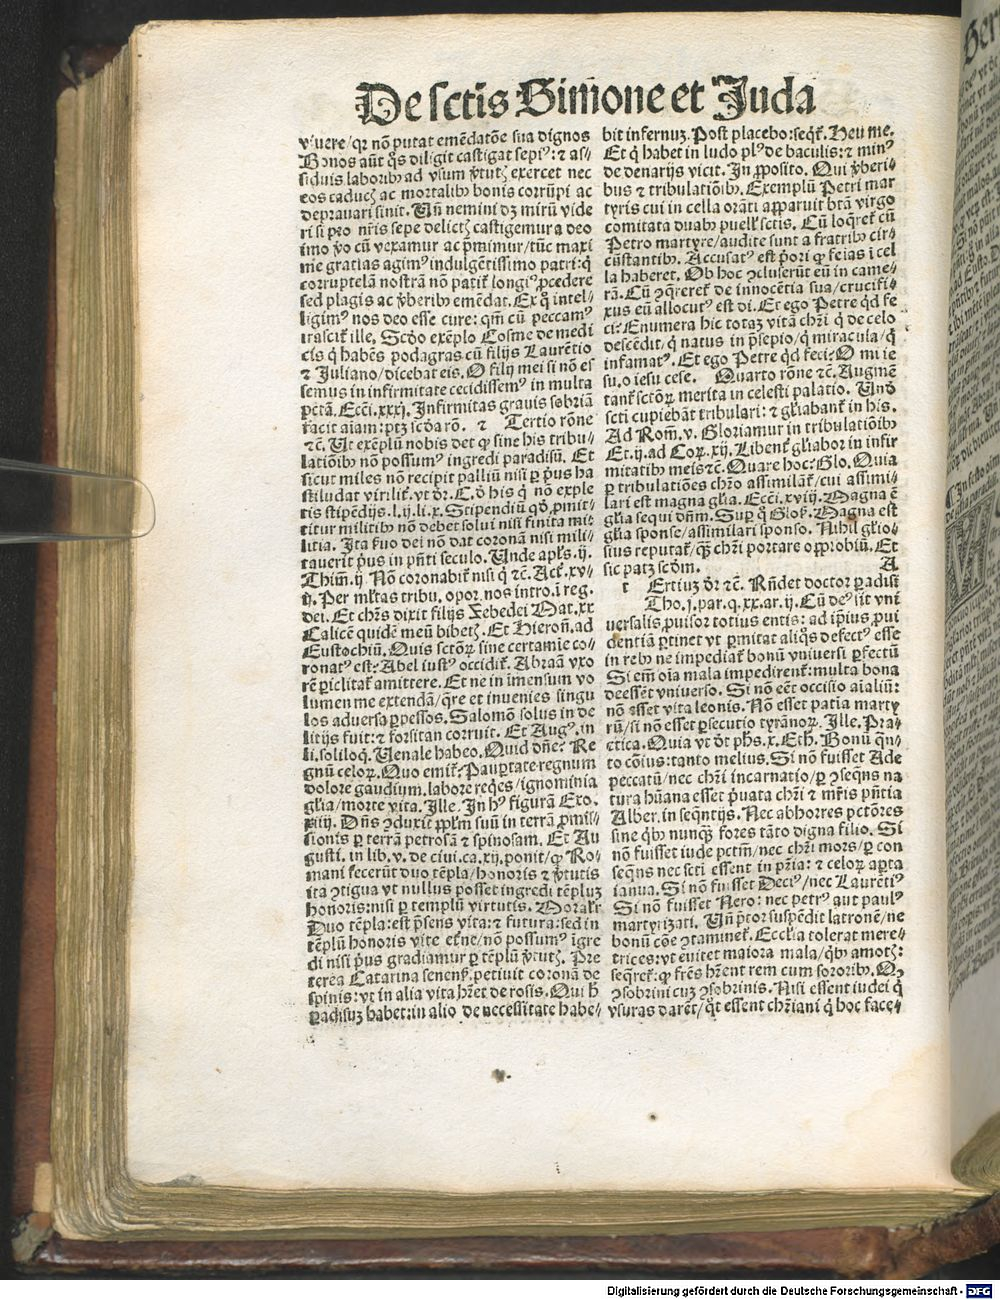 De sctis Simone et Juda
viuere/qr nō putat emēdatōe sua dignos
Bonos aūt q̄s diligit castigat sepiꝰ: ⁊ as/
siduis laboribꝫ ad vsum v̄tutꝭ exercet nec
eos caducꝭ ac mortalibꝫ bonis corrūpi ac
deprauari sinit. Un̄ nemini dꝫ mirū vide
ri si pro nr̄is sepe delictꝭ castigemur a deo
imo v̄o cū vexamur ac p̄mimur/tūc maxi
me gratias agimꝰ indulgētissimo patri: q̄
corruptelā nostrā nō patit̄ longiꝰ ꝓcedere
sed plagis ac v̄beribꝫ emēdat. Ex q̄ intel/
ligimꝰ nos deo esse cure: qm̄ cū peccamꝰ
irascit̄ ille. Scd̄o exēplo Cosme de medi
cis q̄ habēs podagras cū filijs Laurētio
⁊ Juliano/dicebat eis. O filij mei si nō es
semus in infirmitate cecidissemꝰ in multa
pctā. Ecci.xxxj. Infirmitas grauis sobriā
facit aiam: ptꝫ scd̄a rō. ⁊ Tertio rōne
⁊c. Ut exēplū nobis det ꝙ sine his tribu/
latiōibꝫ nō possumꝰ ingredi paradisū. Et
sicut miles nō recipit palliū nisi ꝑ p̄us ha
stiludat virilit̄. vt dr̄. C. d̄ his q̄ nō exple
tis stipēdijs. l.ij. li.x. Stipendiū qd̄ ꝓmit/
titur militibꝫ nō debet solui nisi finita mi
litia. Ita suo dei nō dat coronā nisi mili/
tauerit p̄us in pn̄ti seculo. Unde apl̄s. ij.
Thim̄.ij. Nō coronabit̄ nisi q̄ ⁊c. Act̄.xv/
ij. Per ml̄tas tribu. opor. nos intro. ī reg.
dei. Et chr̄s dixit filijs Zebedei Mat.xx
Calicē quidē meū bibetꝭ. Et Hieron̄. ad
Eustochiū. Quis sctōꝝ sine certamīe co/
ronatꝰ est: Abel iustꝰ occidit̄. Abraā vxo
rē ꝑiclitat̄ amittere. Et ne in īmensum vo
lumen me extendā/q̄re et inuenies singu
los aduersa ꝑpessos. Salomō solus in de
litijs fuit: ⁊ forsitan corruit. Et Augꝰ. in
li. soliloq̄. Uenale habeo. Quid dn̄e: Re
gnū celoꝝ. Quo emit̄: Pauꝑtate regnum
dolore gaudium. labore reqēs/ignominia
gl̄ia/morte vita. Ille. In hꝰ figurā Exo.
xiij. Dn̄s ꝯduxit ppl̄m suū in terrā ꝓmis/
sionis ꝑ terrā petrosā ⁊ spinosam. Et Au
gusti. in lib.v. de ciui.ca.xij. ponit/ꝙ Ro/
mani fecerūt duo tēpla/honoris ⁊ v̄tutis
ita ꝯtigua vt nullus posset ingredi tēplum
honoris: nisi ꝑ templū virtutis. Moralr̄
Duo tēpla: est p̄sens vita: ⁊ futura: sed in
tēplū honoris vite et̄ne/nō possumꝰ īgre
di nisi p̄us gradiamur ꝑ tēplū v̄tutꝭ. Pre
terea Catarina senen̄. petiuit coronā de
spinis: vt in alia vita hr̄et de rosis. Qui h̄
ꝑadisuꝫ habet: in alio de necessitate habe/
bit infernuꝫ. Post placebo: seqt̄. Heu me.
Et q̄ habet in ludo plꝰ de baculis: ⁊ minꝰ
de denarijs vicit. In ꝓposito. Qui v̄beri/
bus ⁊ tribulatiōibꝫ. Exemplū Petri mar
tyris cui in cella orāti apparuit btā virgo
comitata duabꝫ puell̄ sctis. Cū loqret̄ cū
Petro martyre/audite sunt a fratribꝫ cir/
cūstantibꝫ. Accusatꝰ est p̄ori ꝙ feīas ī cel
la haberet. Ob hoc ꝯcluserūt eū in came/
rā. Cū ꝯq̄reret̄ de innocētia sua/crucifi/
xus eū allocutꝰ est di. Et ego Petre qd̄ fe
ci: Enumera hic totaꝫ vitā chr̄i q̄ de celo
descēdit/q̄ natus in p̄sepio/q̄ miracula/q̄
infamatꝰ. Et ego Petre qd̄ feci: O mi ie
su. o iesu cese. Quarto rōne ⁊c. Augmē
tant̄ sctōꝝ merita in celesti palatio. Un̄
scti cupiebāt tribulari: ⁊ gl̄iabant̄ in his.
Ad Rom̄.v. Gloriamur in tribulatiōibꝫ
Et.ij. ad Coꝝ.xij. Libent̄ gl̄iabor in infir
mitatibꝫ meis ⁊c. Quare hoc: Glo. Quia
ꝑ tribulatiōes chr̄o assimilāt̄/cui assimi/
lari est magna gl̄ia. Ecci.xviij. Magna ē
gl̄ia sequi dn̄m. Suꝑ q̄ Glos̄. Magna est
gl̄ia sponse/assimilari sponso. Nihil gl̄io/
sius reputat̄/qꝫ chr̄i portare opprobiū. Et
sic patꝫ scd̄m. A
t Ertius dr̄ ⁊c. Rn̄det doctor ꝑadisi
Tho.j. par.q.xx.ar.ij. Cū deꝰ sit vni
uersalis ꝓuisor totius entis: ad ip̄ius ꝓui
dentiā ꝑtinet vt ꝑmitat aliq̄s defectꝰ esse
in rebꝫ ne impediat̄ bonū vniuersi ꝑfectū
Si em̄ oīa mala impedirent̄: multa bona
deessēt vniuerso. Si nō eēt occisio aīaliū:
nō esset vita leonis. Nō esset patīa marty
rū/si nō esset ꝑsecutio tyrānoꝝ. Ille. Pra/
ctica. Quia vt dr̄ phs̄.x. Eth̄. Bonū qn̄/
to cōius: tanto melius. Si nō fuisset Ade
peccatū/nec chr̄i incarnatio/ꝑ ꝯseqn̄s na
tura hūana esset p̄uata chr̄i ⁊ mr̄is pn̄tia
Alber. in seqn̄tijs. Nec abhorres pctōres
sine qibꝫ nunq̄ꝫ fores tāto digna filio. Si
nō fuisset iude pctm̄/nec chr̄i mors/ꝑ con
seqn̄s nec scti essent in pr̄ia: ⁊ celoꝝ aꝑta
ianua. Si nō fuisset Deciꝰ/nec Laurētiꝰ
Si nō fuisset Nero: nec petrꝰ aut paulꝰ
martyrizati. Un̄ p̄tor suspēdit latronē/ne
bonū cōe ꝯtaminet̄. Eccl̄ia tolerat mere/
trices: vt euitet maiora mala/qibꝫ amotꝭ:
seqret̄: ꝙ fr̄es hr̄ent rem cum sororibꝫ. Oꝫ
ꝯsobrini cuꝫ ꝯsobrinis. Nisi essent iudei q̄
vsuras darēt/q̄t essent chr̄iani q̄ hoc face/
Digitalisierung gefördert durch die Deutsche Forschungsgemeinschaft - DFG